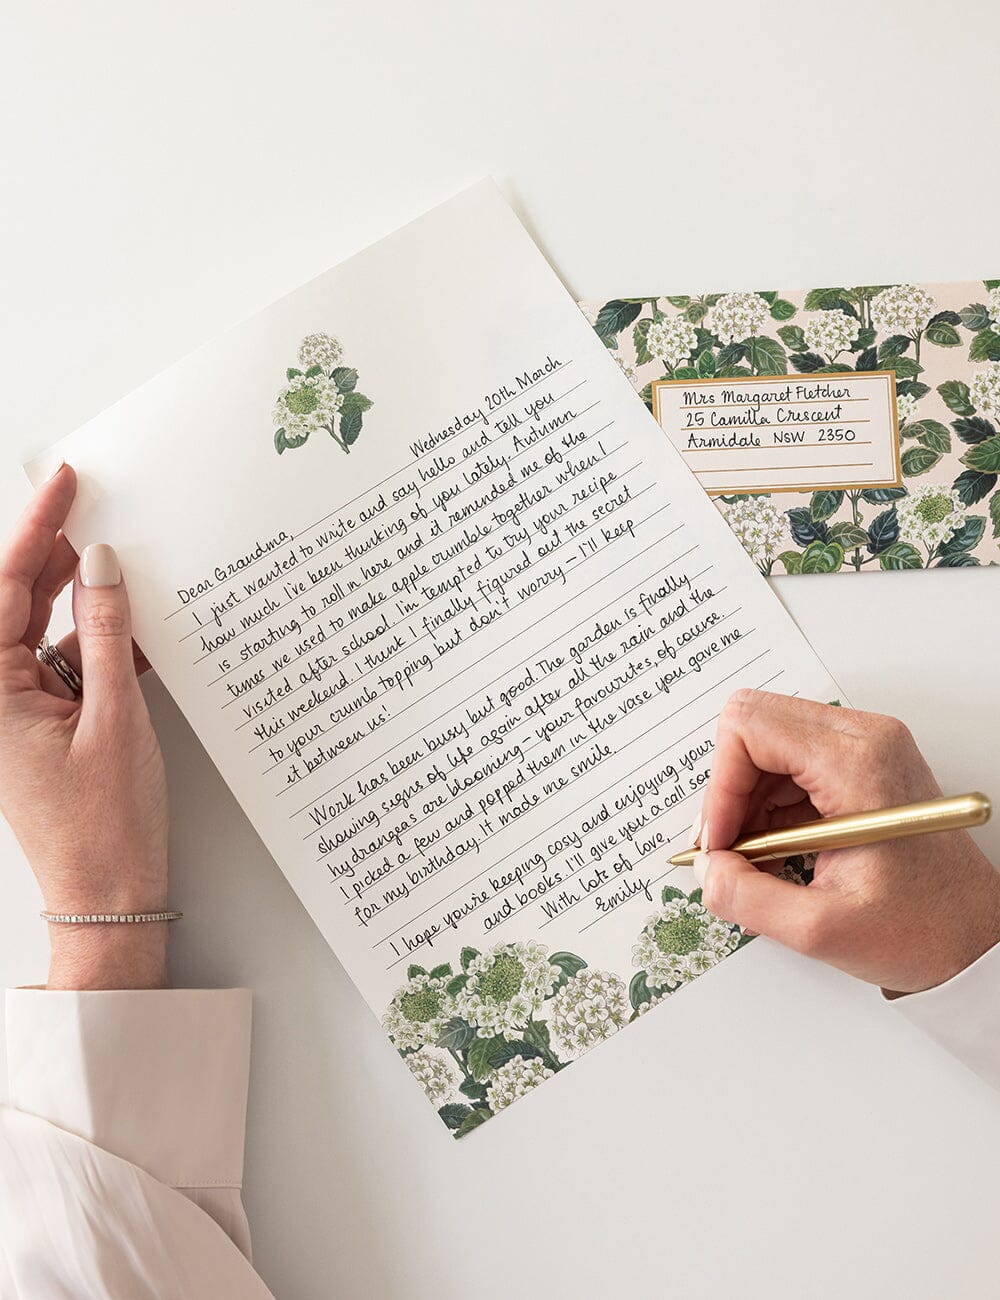 Wednesday 20th March
Dear Grandma,
I just wanted to write and say hello and tell you
how much I've been thinking of you lately. Autumn
is starting to roll in here and it reminded me of the
times we used to make apple crumble together when I
visited after school. I'm tempted to try your recipe
this weekend. I think I finally figured out the secret
to your crumb topping but don't worry – I'll keep
it between us!
Work has been busy but good. The garden is finally
showing signs of life again after all the rain and the
hydrangeas are blooming – your favourites, of course.
I picked a few and popped them in the vase you gave me
for my birthday. It made me smile.
I hope you're keeping cosy and enjoying your
and books. I'll give you a call
With lots of love,
Emily
Mrs Margaret Fletcher
25 Camilla Crescent
Armidale NSW 2350